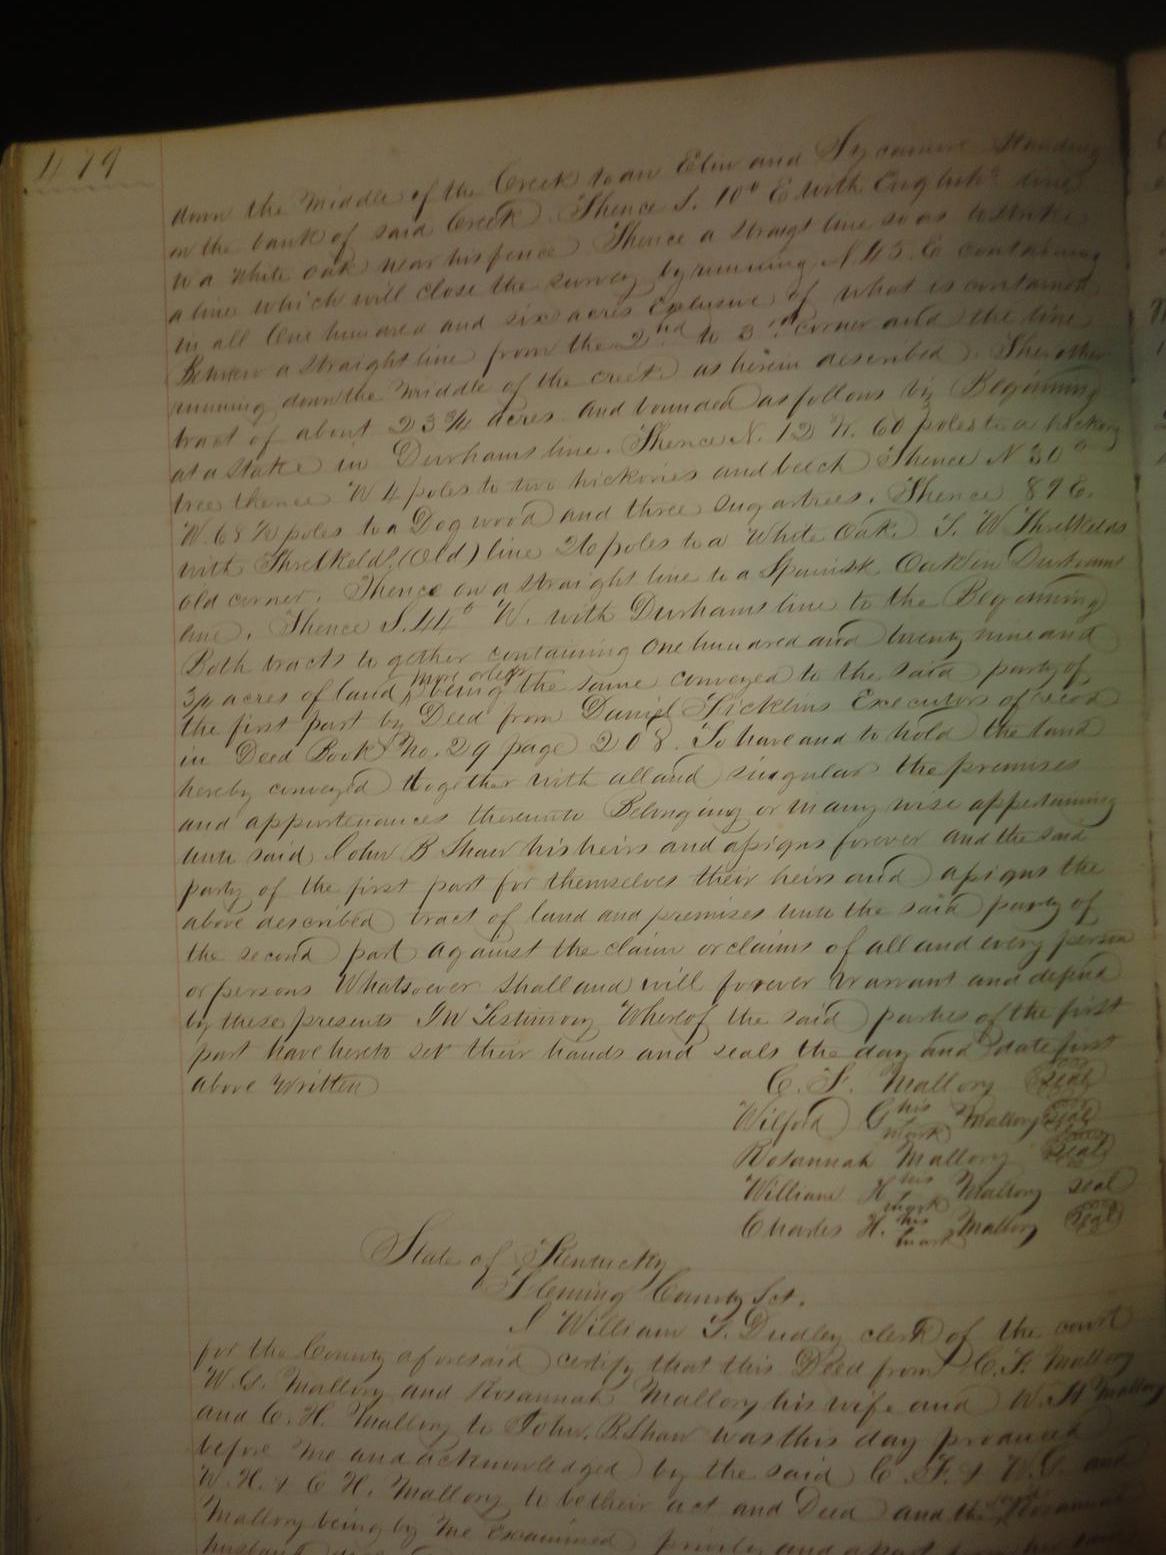 479
down the middle of the Creek to an Elm and Sycamore Standing
on the bank of said Creek Thence S. 10° E with English's line
to a White oak near his fence Thence a straight line so as to strike
a line which will close the survey by running N 45 E containing
in all One hundred and six acres Exclusive of what is contained
Between a straight line from the 2nd to 3rd corner and the line
running down the middle of the creek as herein described. The other
tract of about 23 3/4 acres and bounded as follows by Beginning
at a Stake in Durhams line. Thence N. 12 W. 60 poles to a hickory
tree thence W 4 poles to two hickories and beech Thence N 30°
W. 68 1/2 poles to a Dogwood and three Sugartrees. Thence 89 E.
with Threlkelds (Old) line 26 poles to a White Oak. T. W Threlkelds
old corner. Thence on a straight line to a Spanish Oak in Durhams
line. Thence S. 44° W. with Durhams line to the Beginning
Both tracts together containing One hundred and twenty nine and
3/4 acres of land more or less being the same conveyed to the said party of
the first part by Deed from Daniel Ficklins Executors of record
in Deed Book No. 29 page 208. To have and to hold the land
hereby conveyed together with all and singular the premises
and appurtenances thereunto Belonging or in any wise appertaining
unto said John B Shaw his heirs and assigns forever and the said
party of the first part for themselves their heirs and assigns the
above described tract of land and premises unto the said party of
the second part against the claim or claims of all and every person
or persons Whatsoever shall and will forever warrant and defend
by these presents In Testimony Whereof the said parties of the first
part have hereto set their hands and seals the day and date first
above Written
C. F. Mallory seal
Wilford G his mark Mallory seal
Rosannah Mallory seal
William H his mark Mallory seal
Charles H. his mark Mallory seal
State of Kentucky
Fleming County Sct.
I William T. Dudley clerk of the court
for the County aforesaid certify that this Deed from C. F. Mallory
W. G. Mallory and Rosannah Mallory his wife and W. H Mallory
and C. H. Mallory to John. B. Shaw was this day produced
before me and acknowledged by the said C. F. & W. G. and
W. H. & C H. Mallory to be their act and Deed and the said Rosannah
Mallory being by me Examined privily and apart from her said
husband